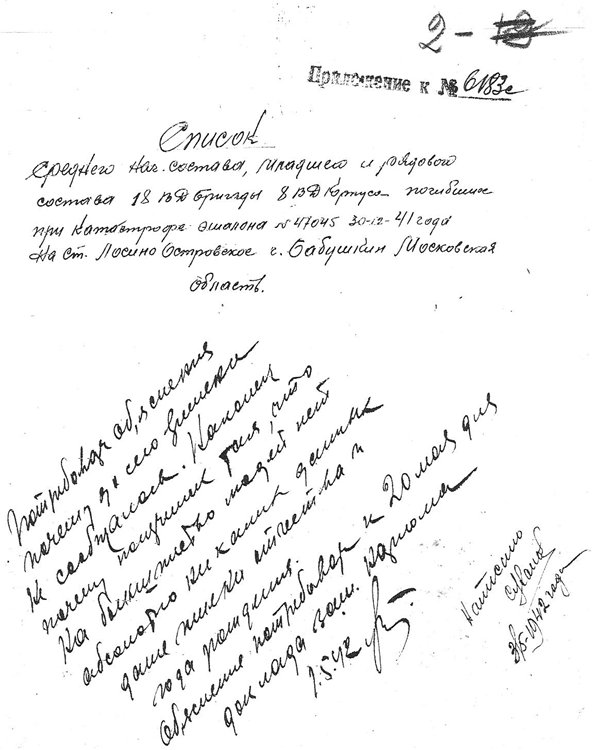 2 - 12
Приложение к № 6183с
Список
среднего нач. состава, младшего и рядового
состава 18 ВД Бригады 8 ВД Корпуса погибшие
при катастрофе эшалона №47045 30-12-41 года
на ст. Лосино Островское г. Бабушкин Московская
область.
Потребовать об,яснения
почему до сего времени
не сообщалось. Наконец
почему получилось так, что
на большинство людей нет
абсолютно никаких данных
даже имени отчества и
года рождения.
Об,яснение потребовать к 20 мая для
доклада зам. наркома
7.5.42
Написано
3/5-1942 года